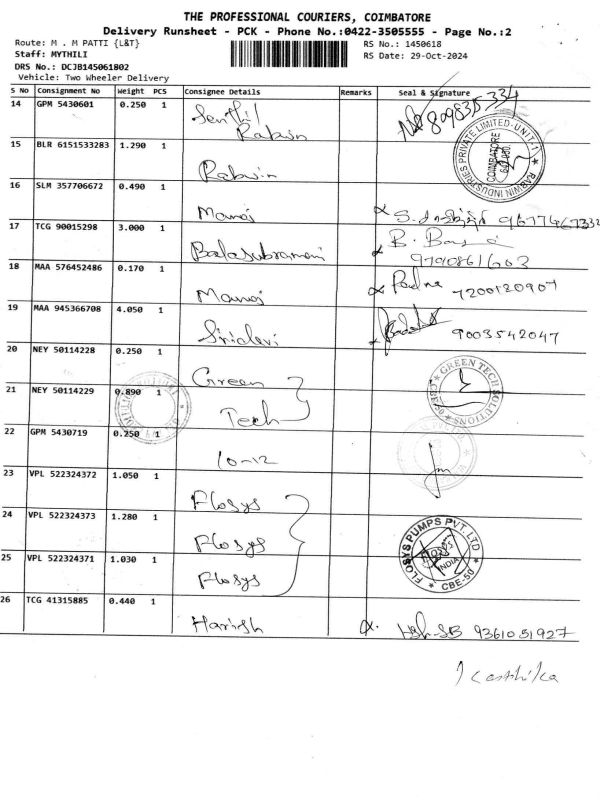 THE PROFESSIONAL COURIERS, COIMBATORE
Delivery Runsheet - PCK - Phone No.:0422-3505555 - Page No.:2
Route: M . M PATTI {L&T}
RS No.: 1450618
Staff: MYTHILI
RS Date: 29-Oct-2024
DRS No.: DCJB145061802
Vehicle: Two Wheeler Delivery
S No Consignment No Weight PCS Consignee Details Remarks Seal & Signature
14 GPM 5430601 0.250 1 Senthil
Rabwin
15 BLR 6151533283 1.290 1 Rabwin
RABWIN INDUSTRIES PRIVATE LIMITED-UNIT-1
COIMBATORE
16 SLM 357706672 0.490 1 Manoj
17 TCG 90015298 3.000 1 Balasubramani 9790861603
18 MAA 576452486 0.170 1 Manoj 7200120907
19 MAA 945366708 4.050 1 Sridevi 9003542047
20 NEY 50114228 0.250 1 Green
21 NEY 50114229 0.890 1 Tech
GREEN TECH SOLUTIONS
CBE-50
22 GPM 5430719 0.250 1 10-12
23 VPL 522324372 1.050 1 Flosys
24 VPL 522324373 1.280 1 Flosys
25 VPL 522324371 1.030 1 Flosys
FLOSYS PUMPS PVT LTD
INDIA
CBE-50
26 TCG 41315885 0.440 1 Harish 9361051927